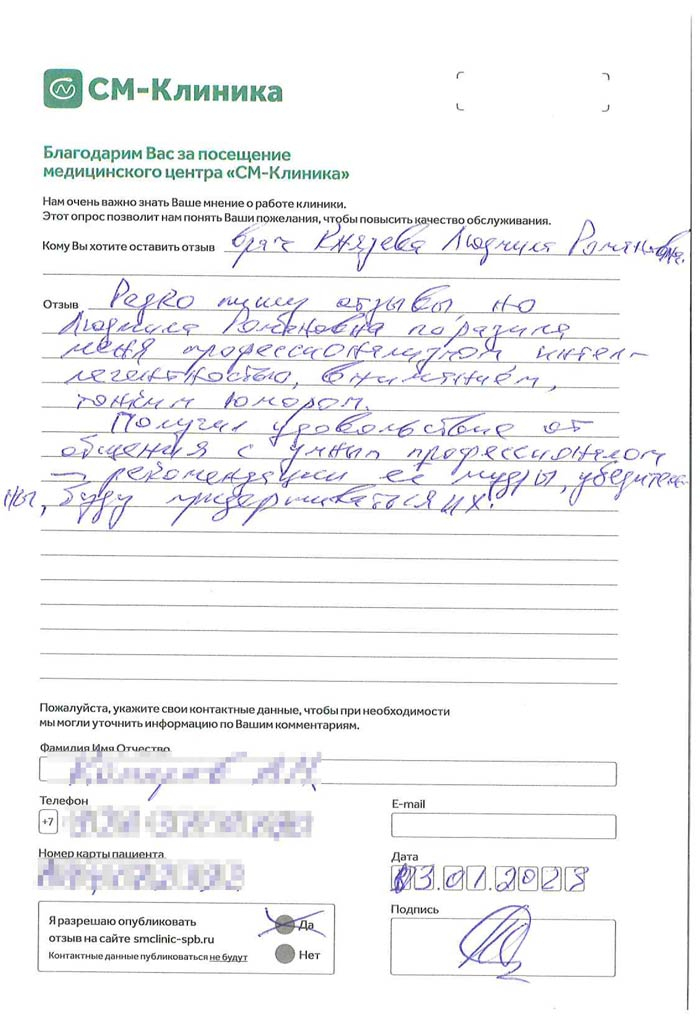 СМ-Клиника
Благодарим Вас за посещение
медицинского центра «СМ-Клиника»
Нам очень важно знать Ваше мнение о работе клиники.
Этот опрос позволит нам понять Ваши пожелания, чтобы повысить качество обслуживания.
Кому Вы хотите оставить отзыв врач Князева Людмила Романовна.
Отзыв Редко пишу отзывы, но
Людмила Романовна поразила
меня профессионализмом, интел-
легентностью, вниманием,
тонким юмором.
Получил удовольствие от
общения с умным профессионалом
— рекомендации её мудры, убедитель-
ны, буду придерживаться их.
Пожалуйста, укажите свои контактные данные, чтобы при необходимости
мы могли уточнить информацию по Вашим комментариям.
Фамилия Имя Отчество
Телефон
E-mail
+7
Номер карты пациента
Дата
03.01.2023
Я разрешаю опубликовать
отзыв на сайте smclinic-spb.ru
Контактные данные публиковаться не будут
Да
Нет
Подпись